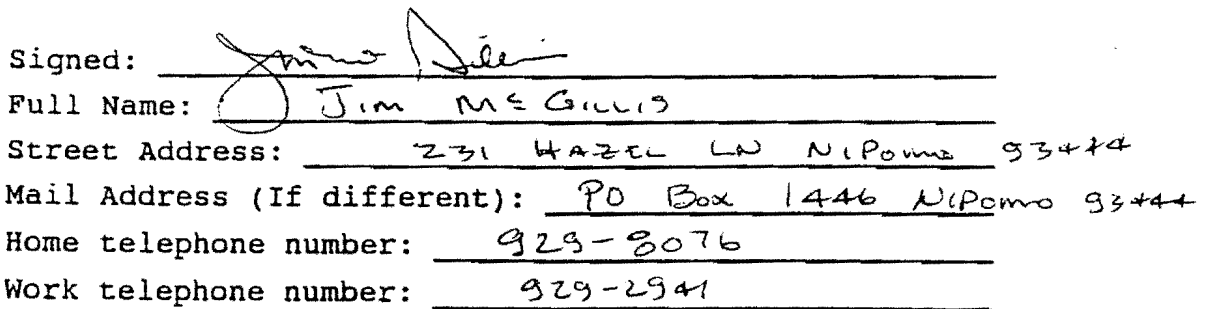 Signed:
Full Name: Jim McGillis
Street Address: 231 HAZEL LN NIPOMO 93444
Mail Address (If different): PO Box 1446 NIPOMO 93444
Home telephone number: 929-8076
Work telephone number: 929-2941